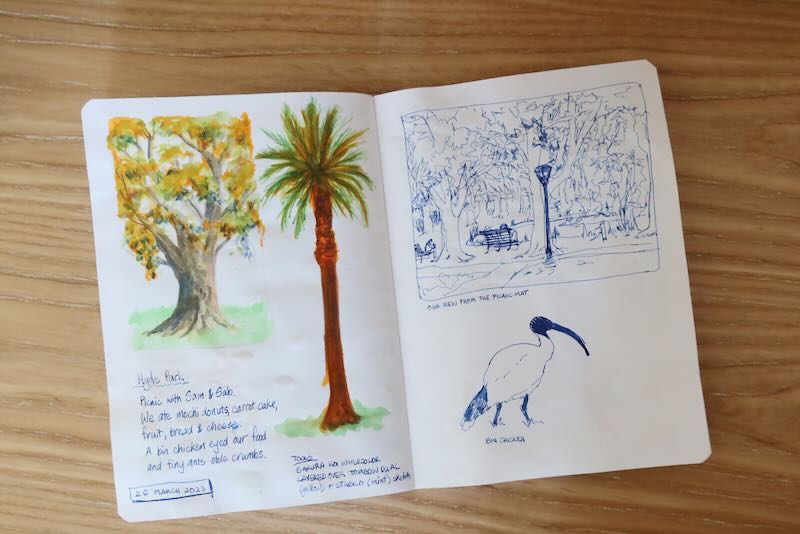 Hyde Park
Picnic with Sam & Sab.
We ate mochi donuts, carrot cake,
fruit, bread & cheese.
A bin chicken eyed our food
and tiny ants stole crumbs.
26 MARCH 2023
TOOLS
SAKURA KOI WATERCOLOR
LAYERED OVER TOMBOW DUAL
(yellow) + STABILO (mint) sketch
OUR VIEW FROM THE PICNIC MAT
BIN CHICKEN